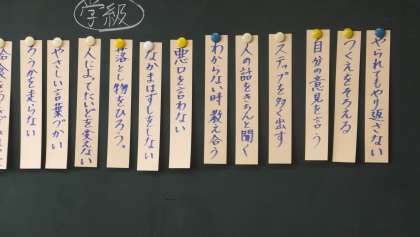 学級
やられてもやり返さない
つくえをそろえる
自分の意見を言う
ステップを多く出す
人の話をきちんと聞く
わからない時教え合う
悪口を言わない
なかまはずしをしない
落とし物をひろう。
人によってたいどを変えない
やさしい言葉づかい
ろうかを走らない